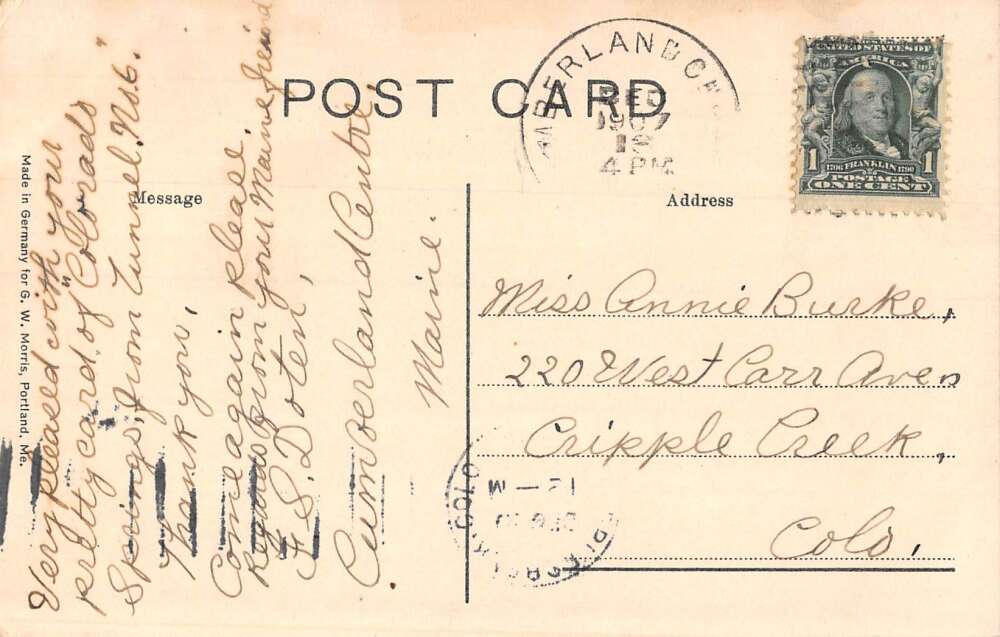 POST CARD
Message
Address
Made in Germany for G. W. Morris, Portland, Me.
Very pleased with your
pretty card of "Colorado
Springs," from Tunnel. No. 6.
Thank you,
Come again please.
Regards from your Maine friend
F. S. Doten,
Cumberland Centre
Maine.
DEC
1907
4 PM
UNITED STATES OF
AMERICA
1706 FRANKLIN 1790
1 POSTAGE 1
ONE CENT
Miss Annie Burke,
220 West Carr Aven
Cripple Creek,
Colo.
12 — M
COLO